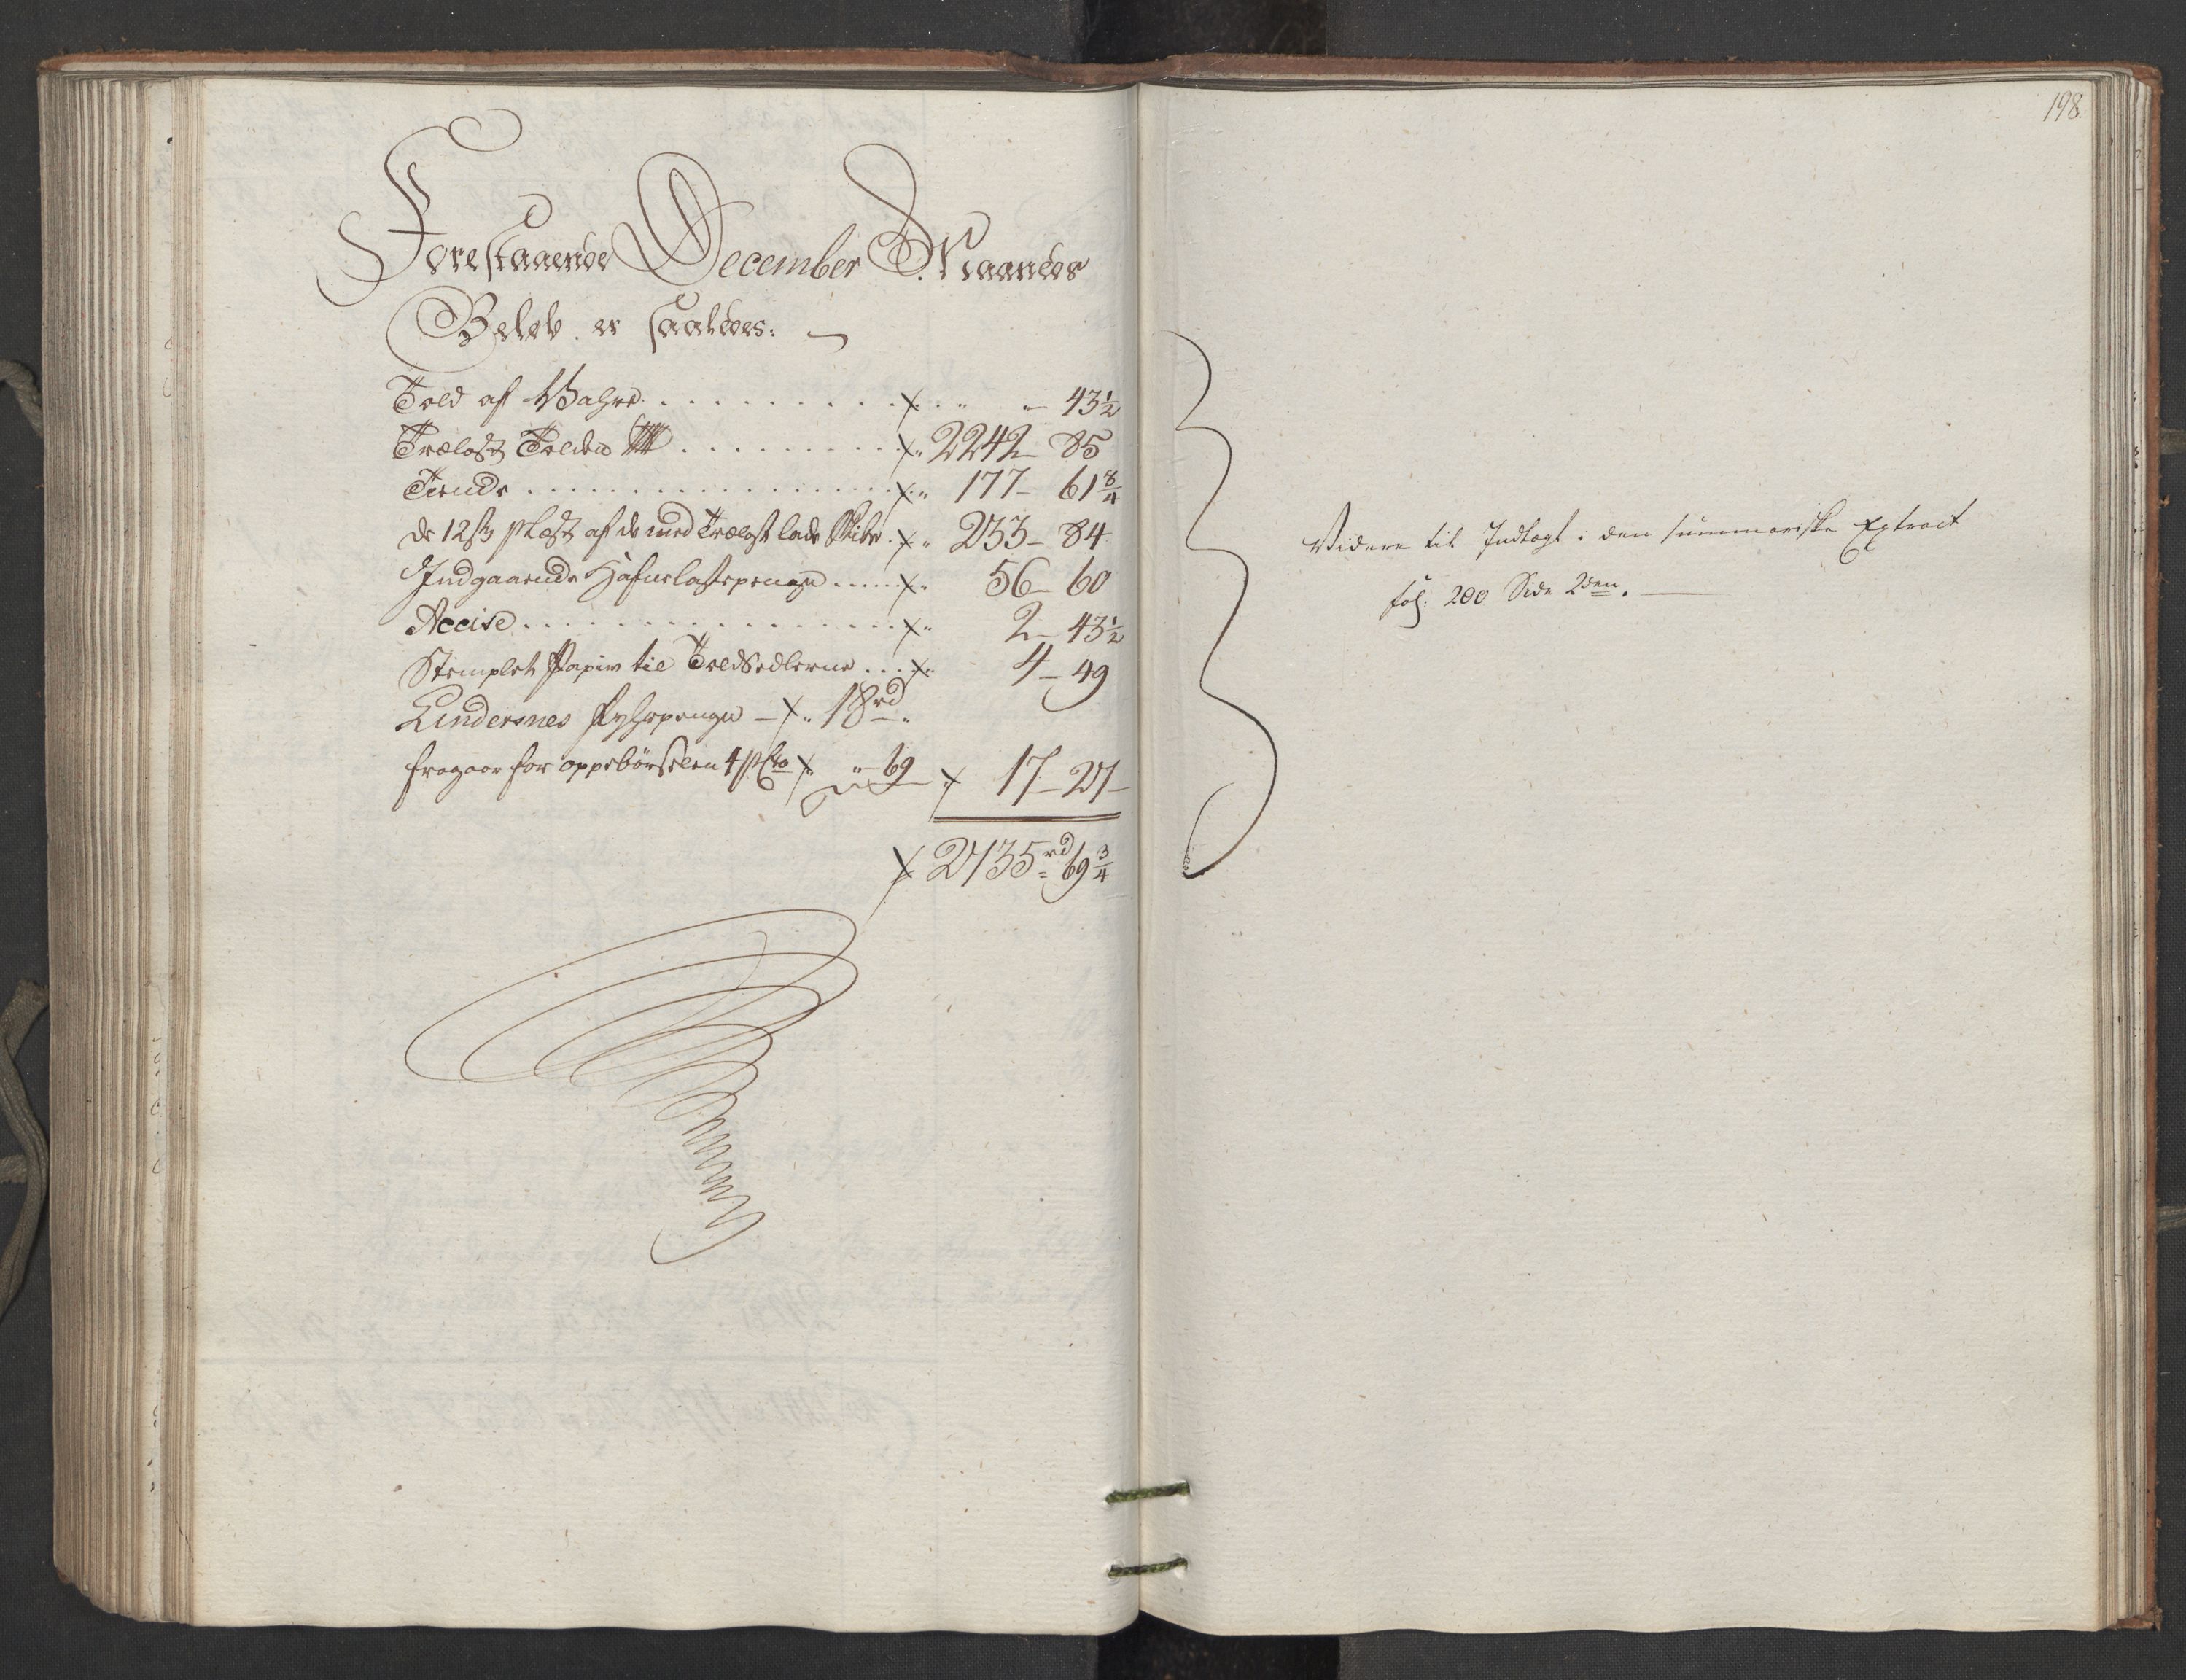 198.
Forestaaende December Maaneds
Beløb er saaledes:
Told af Vahre . . . . . . . . . . " " 43½
Trælast Tolden . . . . . . . . . 2242 – 85
Tiende . . . . . . . . . . . . . . . . 177 – 61¾
de 12 ß pr Læst af de med Trælast lade Skibe . 233 – 84
Indgaaende Hafnelastepenge . . . . . 56 – 60
Accise . . . . . . . . . . . . . . . . 2 – 43½
Stemplet Papiir til Toldsedlerne . . . 4 – 49
Lindersnes Fyhrpenge – 18 rd "
fragaar for oppebörselen 4 p Cto " 69 17 – 27 –
2735 rd 69¾
Videre til Indtægt i den summariske Extract
fol: 200 Side 2den.